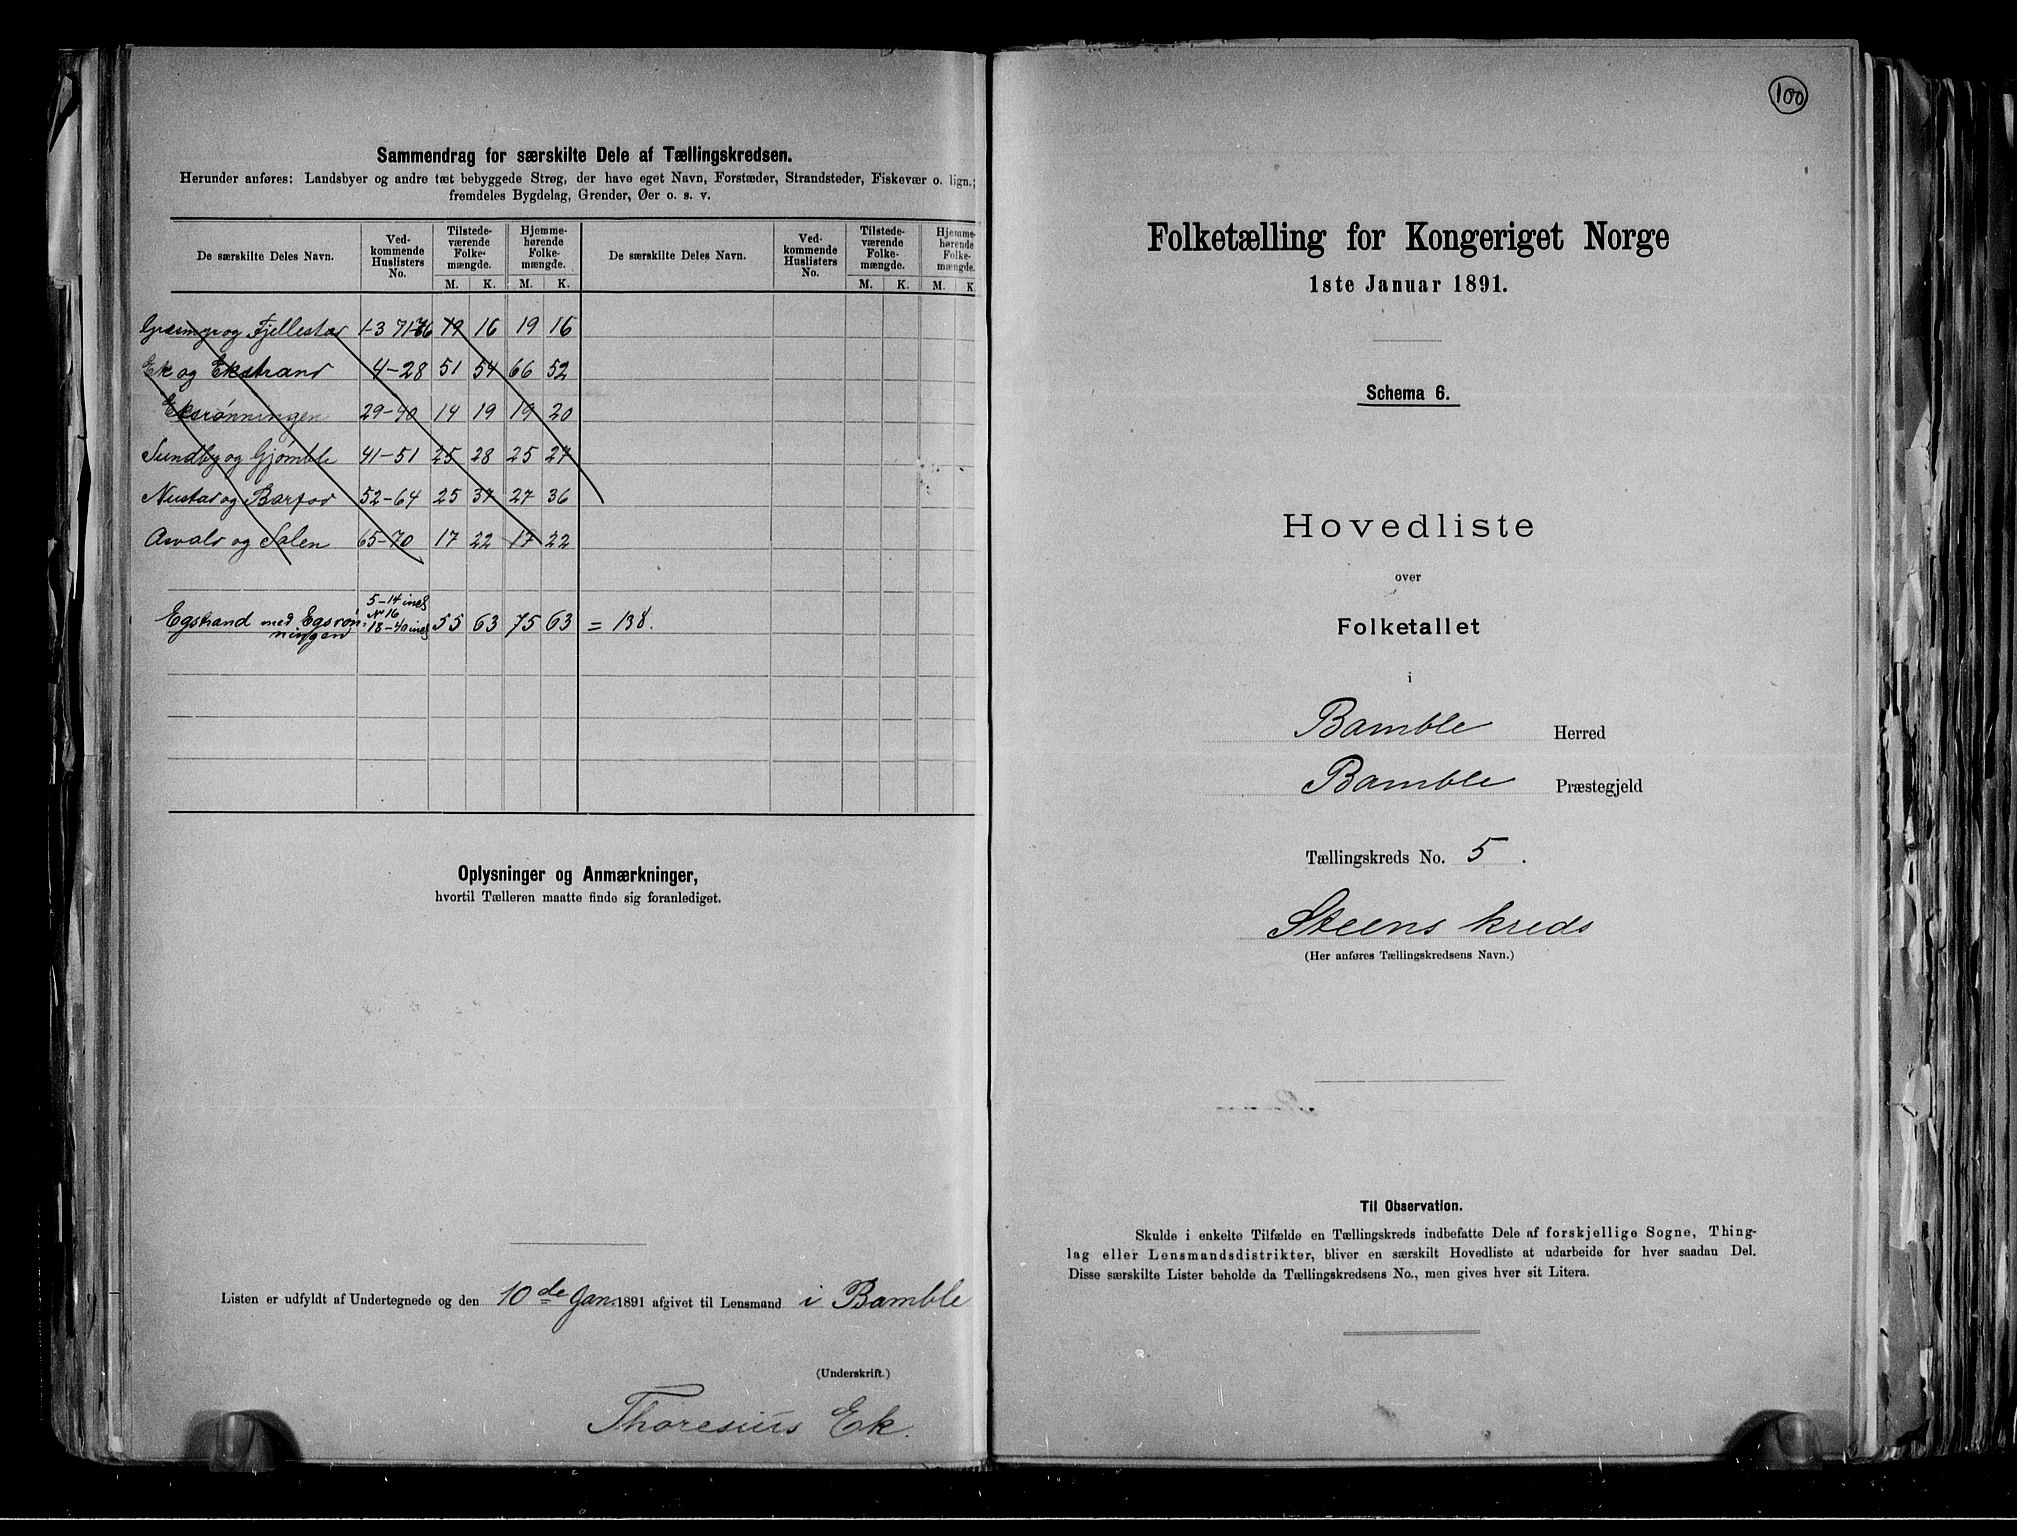 Sammendrag for særskilte Dele af Tællingskredsen.
Herunder anføres: Landsbyer og andre tæt bebyggede Strøg, der have eget Navn, Forstæder, Strandsteder, Fiskevær o. lign.;
fremdeles Bygdelag, Grender, Øer o. s. v.
De særskilte Deles Navn. Ved-kommende Huslisters No. Tilstede-værende Folke-mængde. Hjemme-hørende Folke-mængde. De særskilte Deles Navn. Ved-kommende Huslisters No. Tilstede-værende Folke-mængde. Hjemme-hørende Folke-mængde.
M. K. M. K. M. K. M. K
og Fjellestad 1-3 71-76 19 16 19 16
Ek og Ekstrand 4-28 51 54 66 52
Eksrønningen 29-40 14 19 19 20
Sundby og Gjømble 41-51 25 28 25 27
Nustad og Barfod 52-64 25 37 27 36
Asvald og Salen 65-70 17 22 17 22
Egstrand med Egsrøn-ningen 5-14 incl No 16 18-40 incl 55 63 75 63 = 138.
Oplysninger og Anmærkninger,
hvortil Tælleren maatte finde sig foranlediget.
Listen er udfyldt af Undertegnede og den 10de Jan. 1891 afgivet til Lensmand i Bamble
(Underskrift.)
Thoresius Ek.
100
Folketælling for Kongeriget Norge
1ste Januar 1891.
Schema 6.
Hovedliste
over
Folketallet
i
Bamble Herred
Bamble Præstegjeld
Tællingskreds No. 5.
Steens kreds
(Her anføres Tællingskredsens Navn.)
Til Observation.
Skulde i enkelte Tilfælde en Tællingskreds indbefatte Dele af forskjellige Sogne, Thing-
lag eller Lensmandsdistrikter, bliver en særskilt Hovedliste at udarbeide for hver saadan Del.
Disse særskilte Lister beholde da Tællingskredsens No., men gives hver sit Litera.